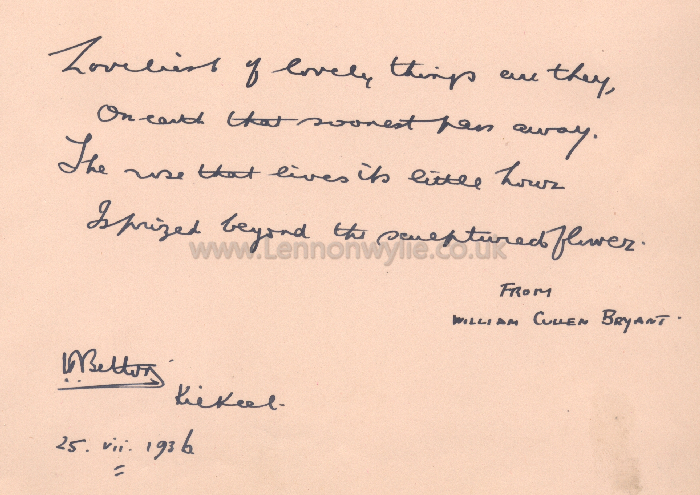 Loveliest of lovely things are they,
On earth that soonest pass away.
The rose that lives its little hour
Is prized beyond the sculptured flower.
www.Lennonwylie.co.uk
FROM
WILLIAM CULLEN BRYANT.
Kilkeel.
25. vii. 1936